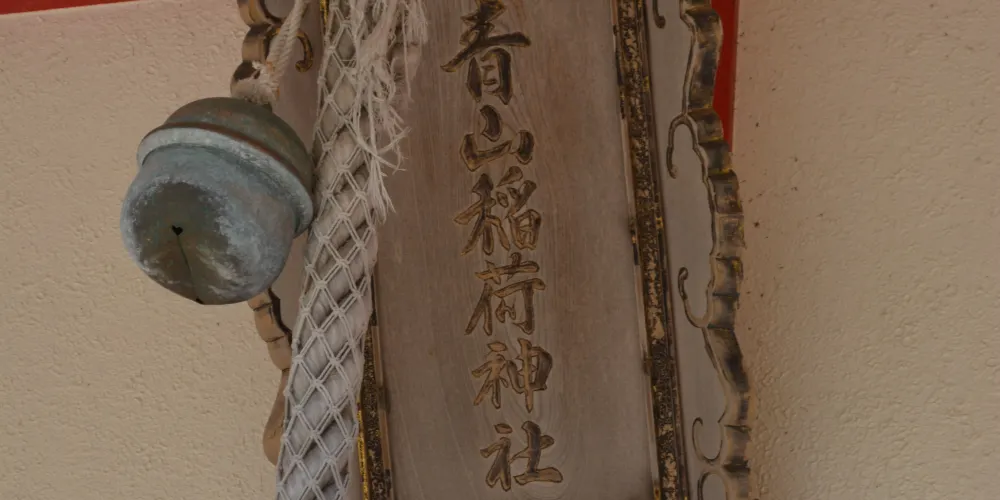 青山稲荷神社